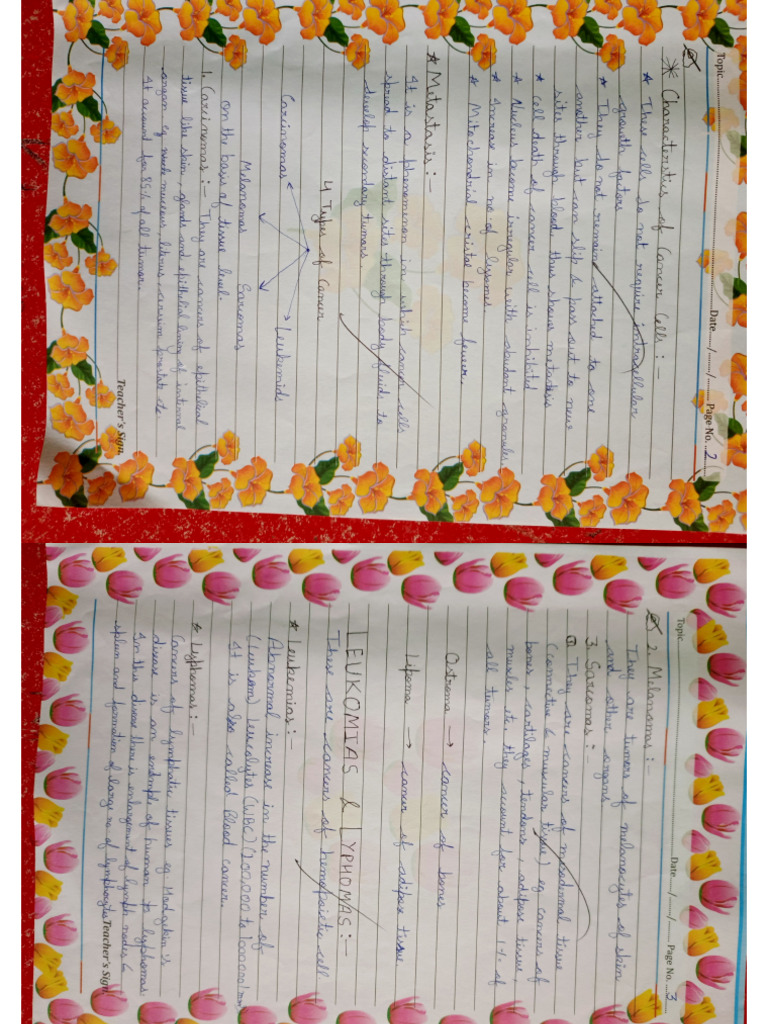 Topic............ Date....../....../...... Page No. 2
* Characteristics of Cancer Cells :-
★ These cells do not require intracellular
growth factors
★ They do not remain attached to one
another but can slip & pass out to new
sites through blood thus shows metastasis
★ cell death of cancer cell is inhibited
★ Nucleus become irregular with abudant granules
★ Increase in no of lysosomes
★ Mitochondrial cristal become fewer.
★ Metastasis :-
It is a phenomenon in which cancer cells
spread to distant sites through body fluids to
develop secondary tumors.
4 Types of Cancer
Carcinomas Leukemids
Melanomas Sarcomas
on the basis of tissue level.
1. Carcinomas :- They are cancers of epithelial
tissue like skin, glands and epithelial lining of internal
organ eg mucous, prostate etc
It account for 85% of all tumor.
Teacher's Sign.
Topic Date....../....../...... Page No. 3
2. Melanomas :-
They are tumors of melanocytes of skin
and other organs
3. Sarcomas :-
They are cancers of mesodermal tissue
(connective & muscular tissue) eg cancers of
bones, cartilages, tendons, adipose tissue,
muscles etc. they account for about 1% of
all tumors.
Ostroma → cancer of bones
Lipoma → cancer of adipose tissue
LEUKOMIAS & LYPHOMAS :-
These are cancers of hemopoietic cell
★ Leukemias :-
Abnormal increase in the number of
(Leukem) Leucolytes (WBC) (200,000 to 1000000/mm
It is also called Blood cancer.
★ Lyphomas :-
Cancers of lymphatic tissues eg Hodgekin's
disease is an exmple of human to lyphomas.
In this disease there is enlargement of lymph nodes &
spleen and formation of large no of lymphocytes
Teacher's Sign